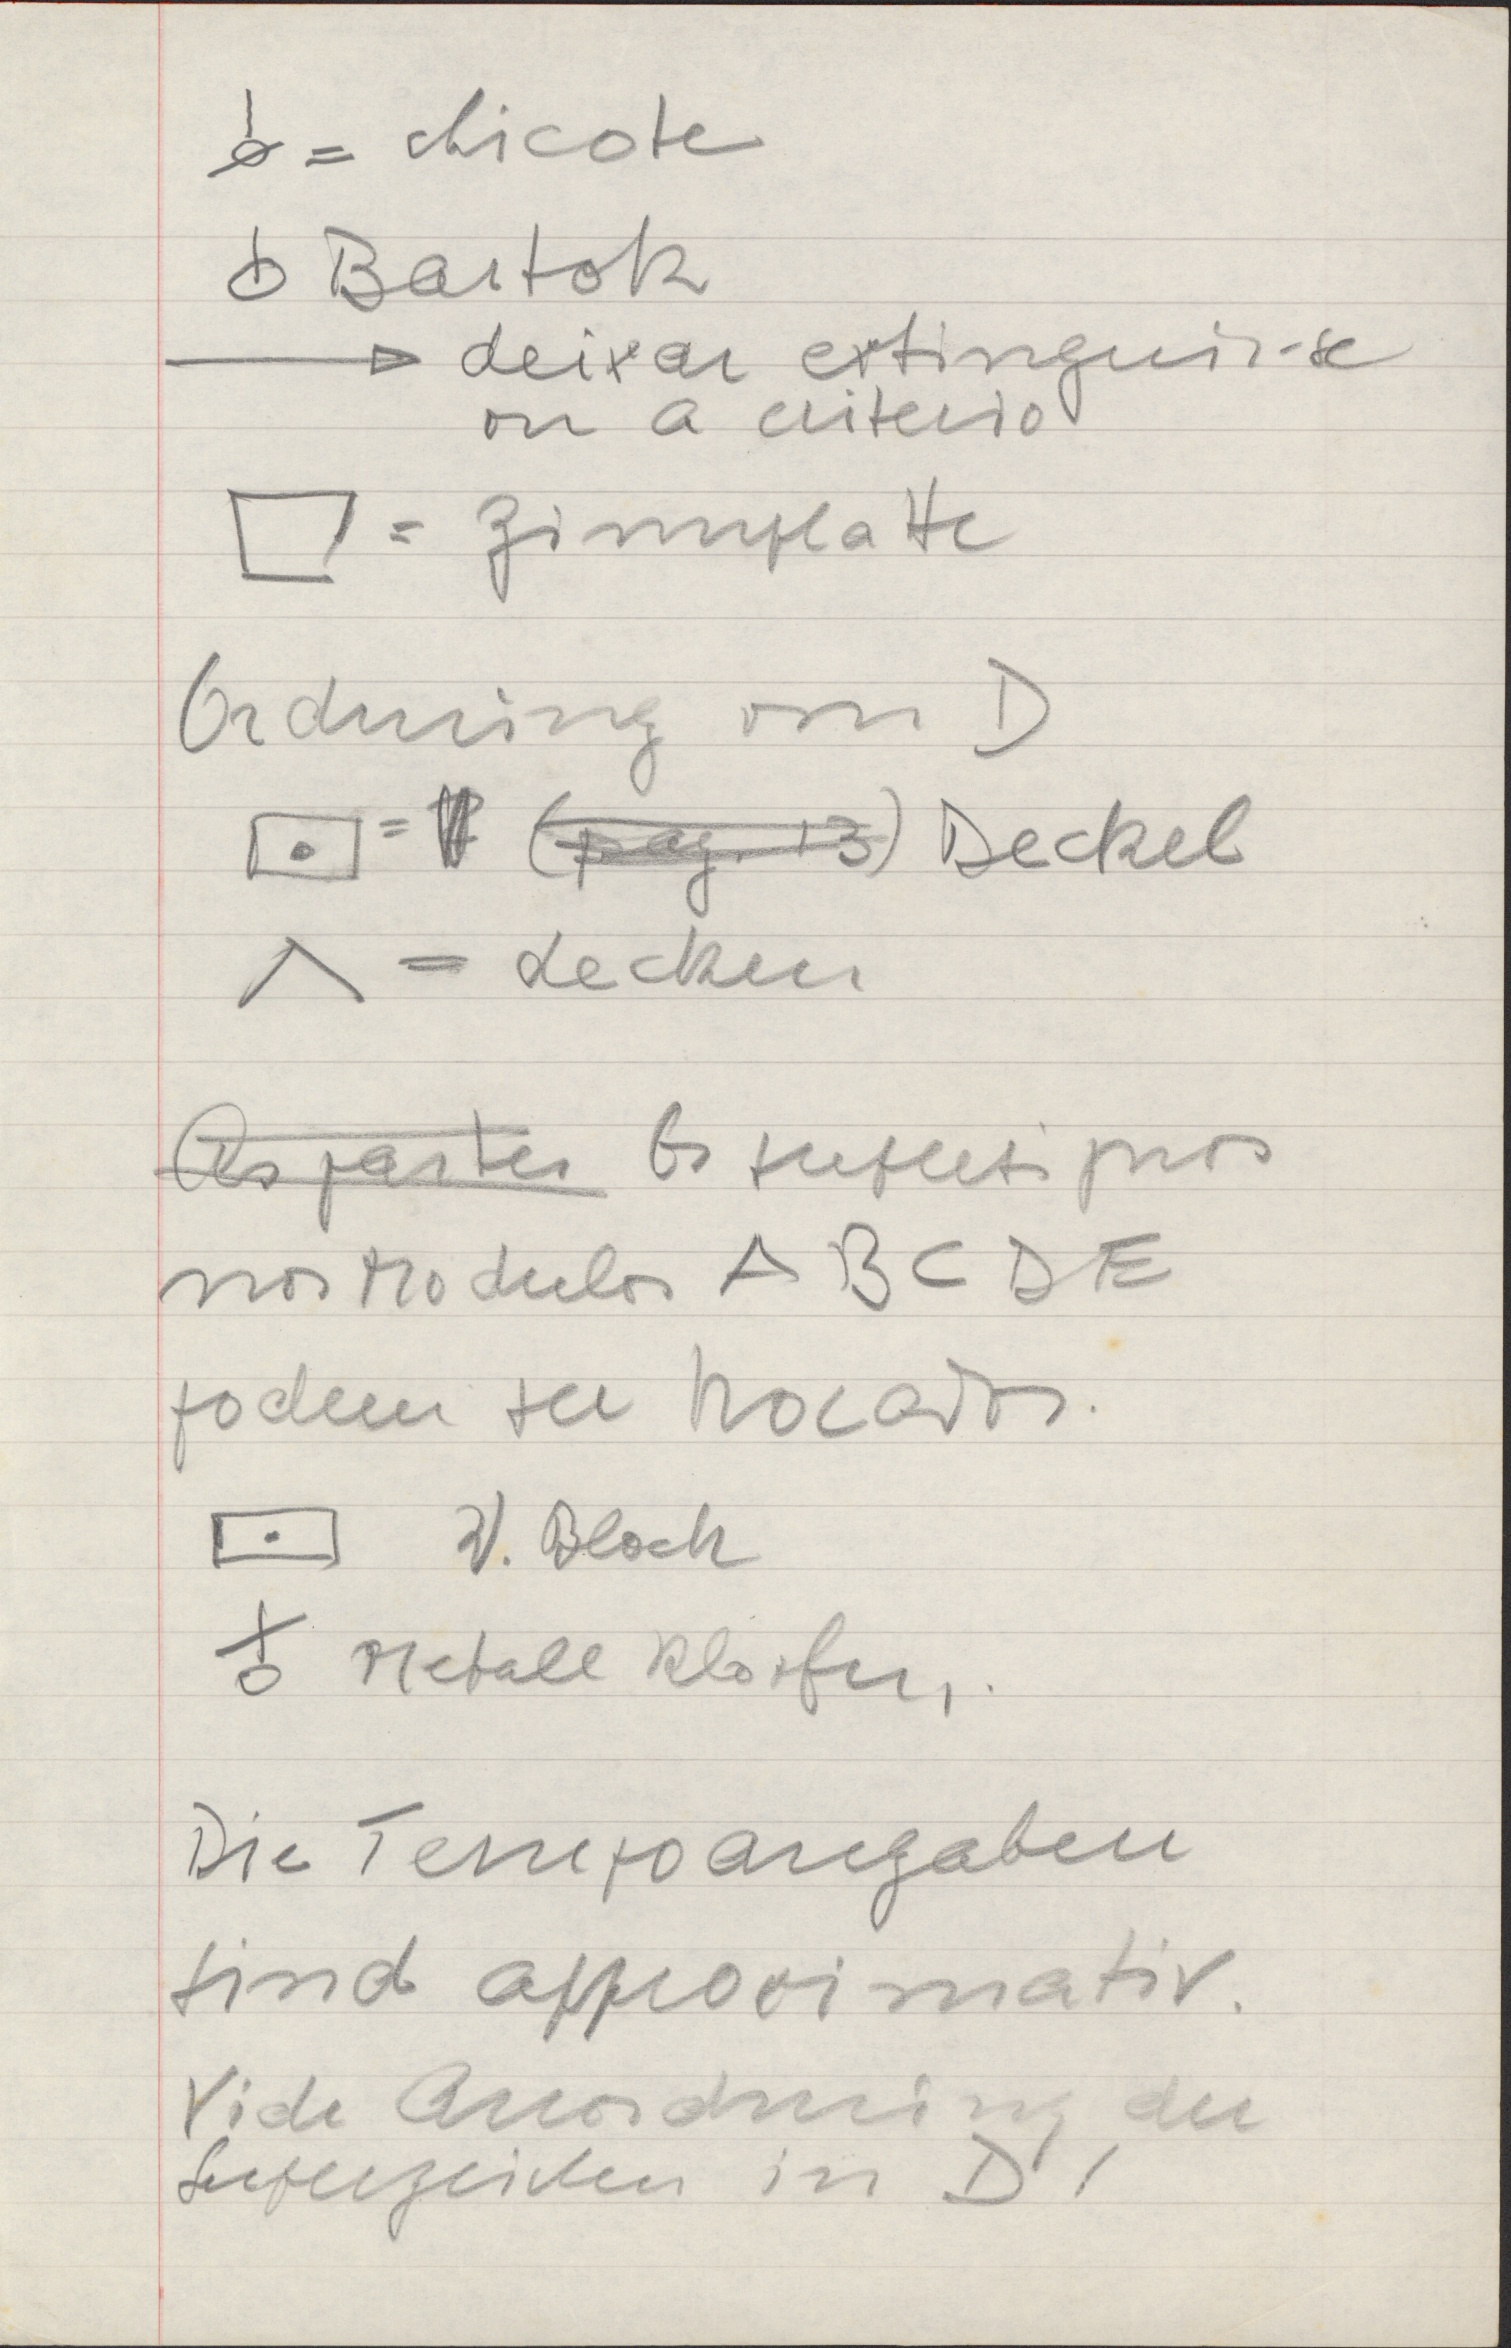 = chicote
Bartok
deixar extinguir-se
ou a criterio
= Zinnplatte
Ordnung von D
= (pag. 13) Deckel
= decken
As partes Os superti
nos Modulos A B C D E
podem ser trocados.
W. Block
Metall Klopfen.
Die Tempoangaben
sind approximativ.
Vide Anordnung der
in D!